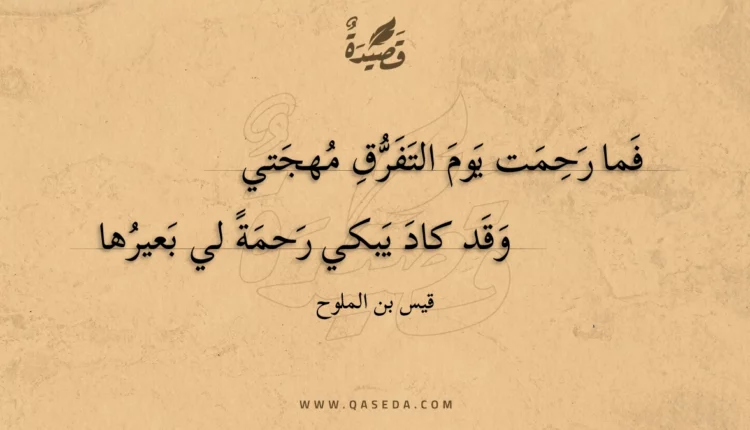 قَصِيْدَةٌ
فَما رَحِمَت يَومَ التَفَرُّقِ مُهجَتي
وَقَد كادَ يَبكي رَحمَةً لي بَعيرُها
قيس بن الملوح
WWW.QASEDA.COM